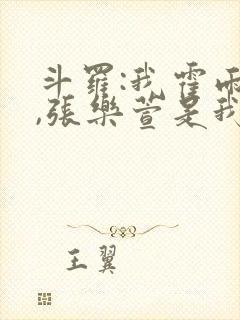 斗罗:我霍雨
,张乐萱是我
王翼